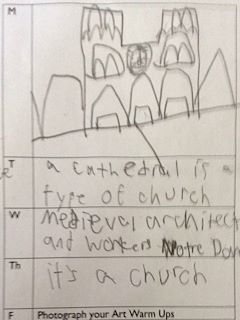 M
T
a cathedral is a
type of church
W
medieval architect
and workers Notre Dam
Th
it's a church
F Photograph your Art Warm Ups